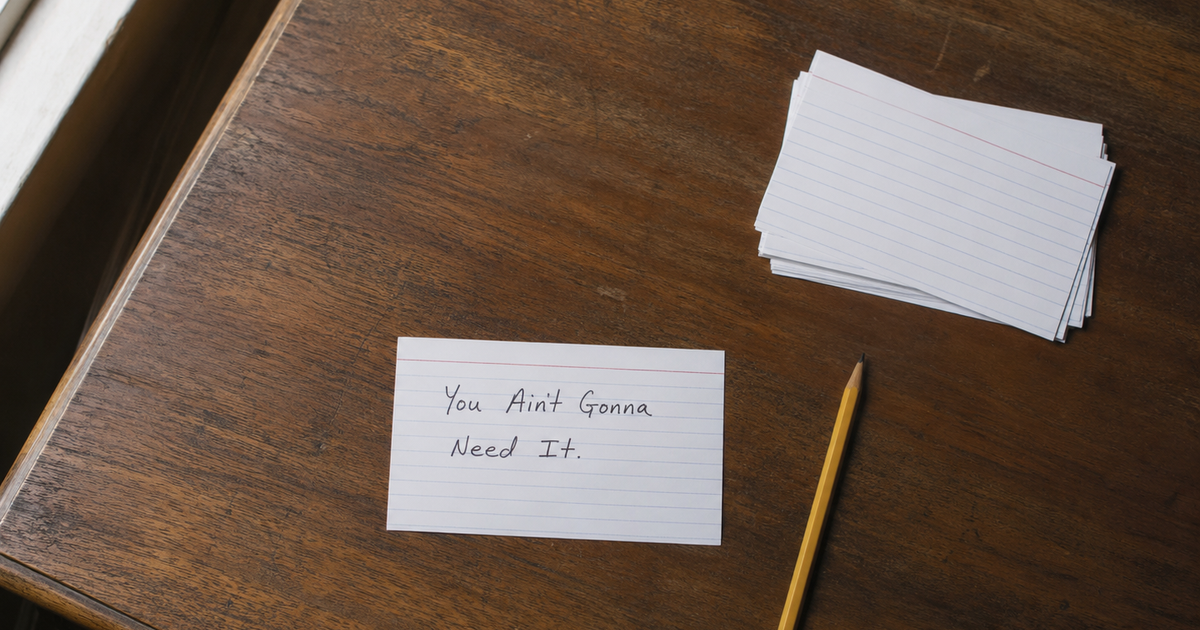 You Ain't Gonna
Need It.